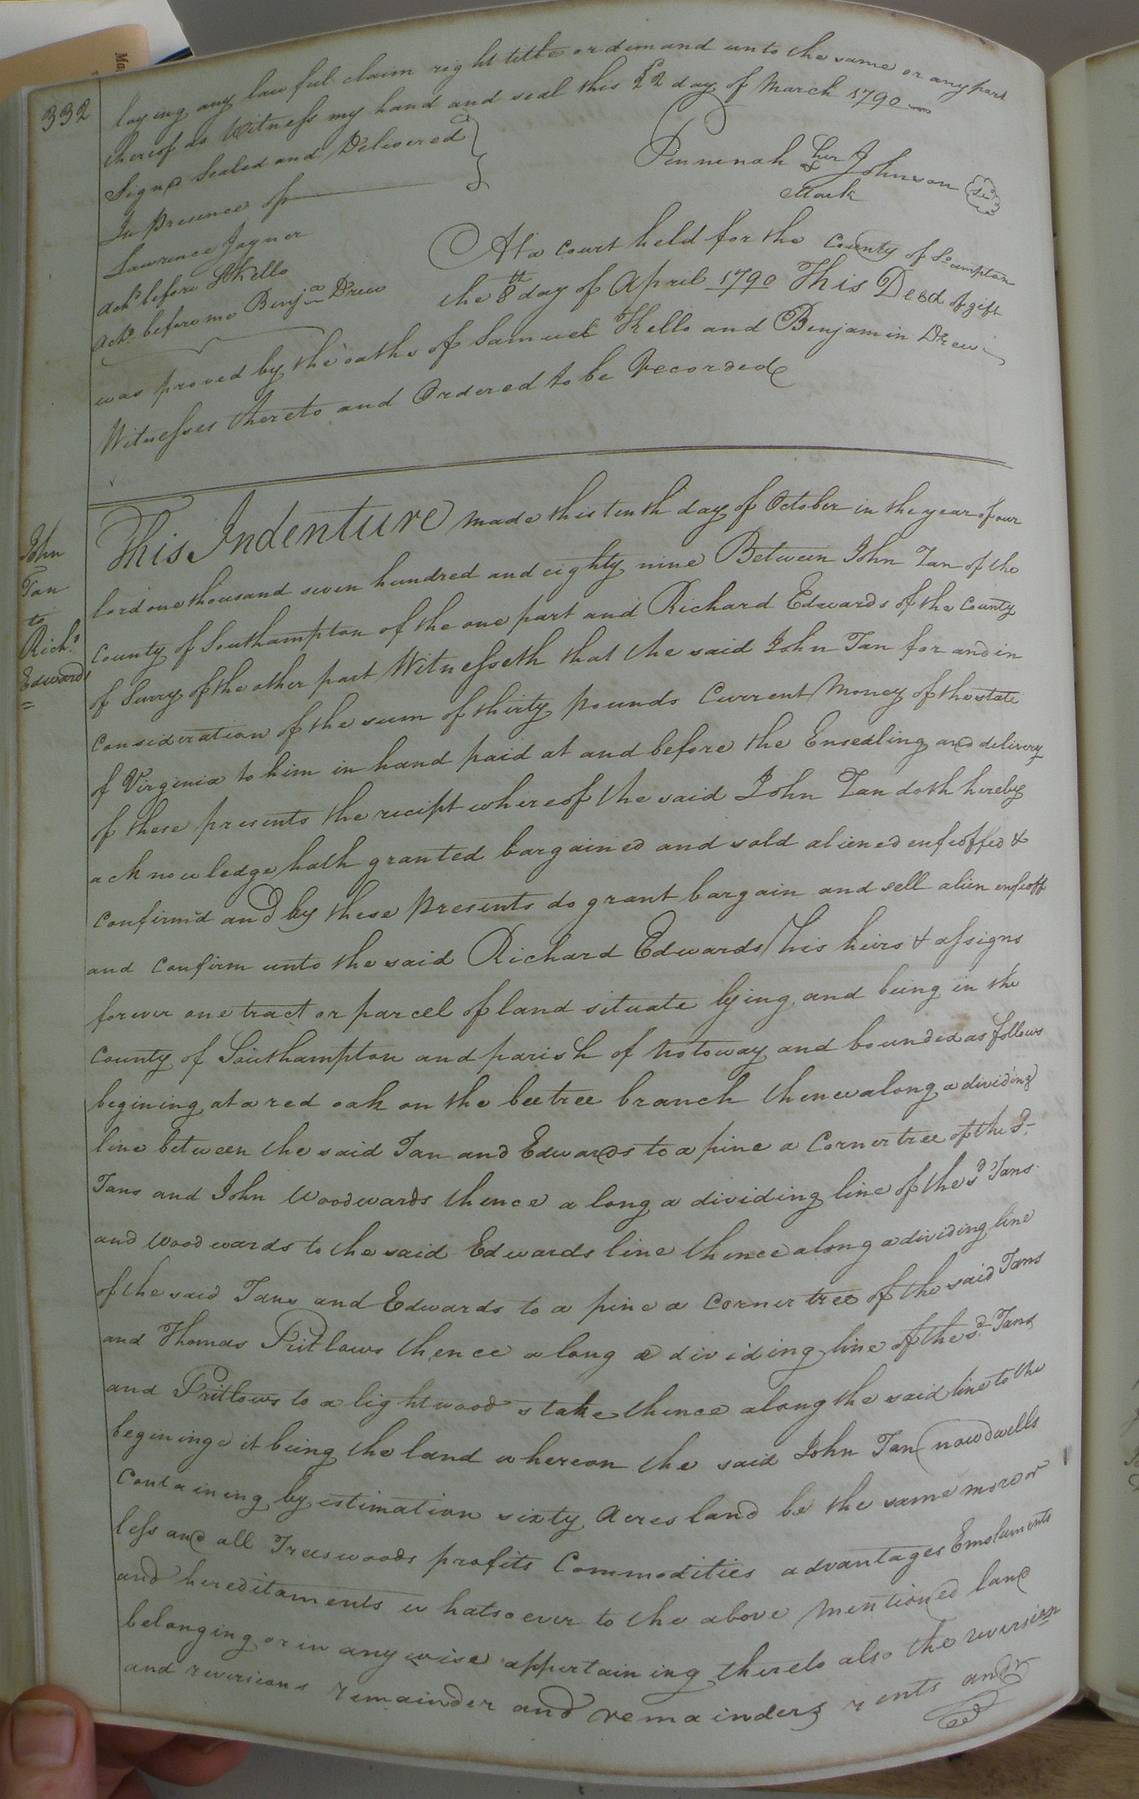 332
laying any lawful claim right title or demand unto the same or any part
thereof as Witness my hand and seal this 22 day of March 1790
Signed Sealed and Delivered
In Presence of
Penninah her Johnson
Mark
Lawrence Joyner
Ackd before S Kello
Ackd before me Benja Drew
At a Court held for the County of Southampton
the 8th day of April 1790 This Deed of gift
was proved by the oaths of Samuel Kello and Benjamin Drew
Witnesses thereto and Ordered to be Recorded
John
Tan
to
Richd
Edwards
This Indenture made this tenth day of October in the year of our
lord one thousand seven hundred and eighty nine Between John Tan of the
County of Southampton of the one part and Richard Edwards of the County
of Surry of the other part Witnesseth that the said John Tan for and in
consideration of the sum of thirty pounds Current Money of the state
of Virginia to him in hand paid at and before the Ensealing and delivery
of these presents the recipt whereof the said John Tan doth hereby
acknowledge hath granted bargained and sold aliened enfeoffed &
confirmd and by these presents do grant bargain and sell alien enfeoff
and confirm unto the said Richard Edwards his heirs & assigns
forever one tract or parcel of land situate lying and being in the
County of Southampton and parish of Notoway and bounded as follows
begining at a red oak on the beetree branch thence along a dividing
line between the said Tan and Edwards to a pine a Corner tree of the Sd
Tans and John Woodwards thence along a dividing line of the sd Tans
and Woodwards to the said Edwards line thence along a dividing line
of the said Tans and Edwards to a pine a corner tree of the said Tans
and Thomas Pritlows thence along a dividing line of the sd Tans
and Pritlows to a lightwood stake thence along the said line to the
begeninge it being the land whereon the said John Tan now dwells
Containing by estimation sixty Acres land be the same more or
less and all Trees woods profits Commodities advantages Emoluments
and hereditaments whatsoever to the above mentioned land
belonging or in any wise appertaining thereto also the reversion
and reversions remainder and remainders rents and